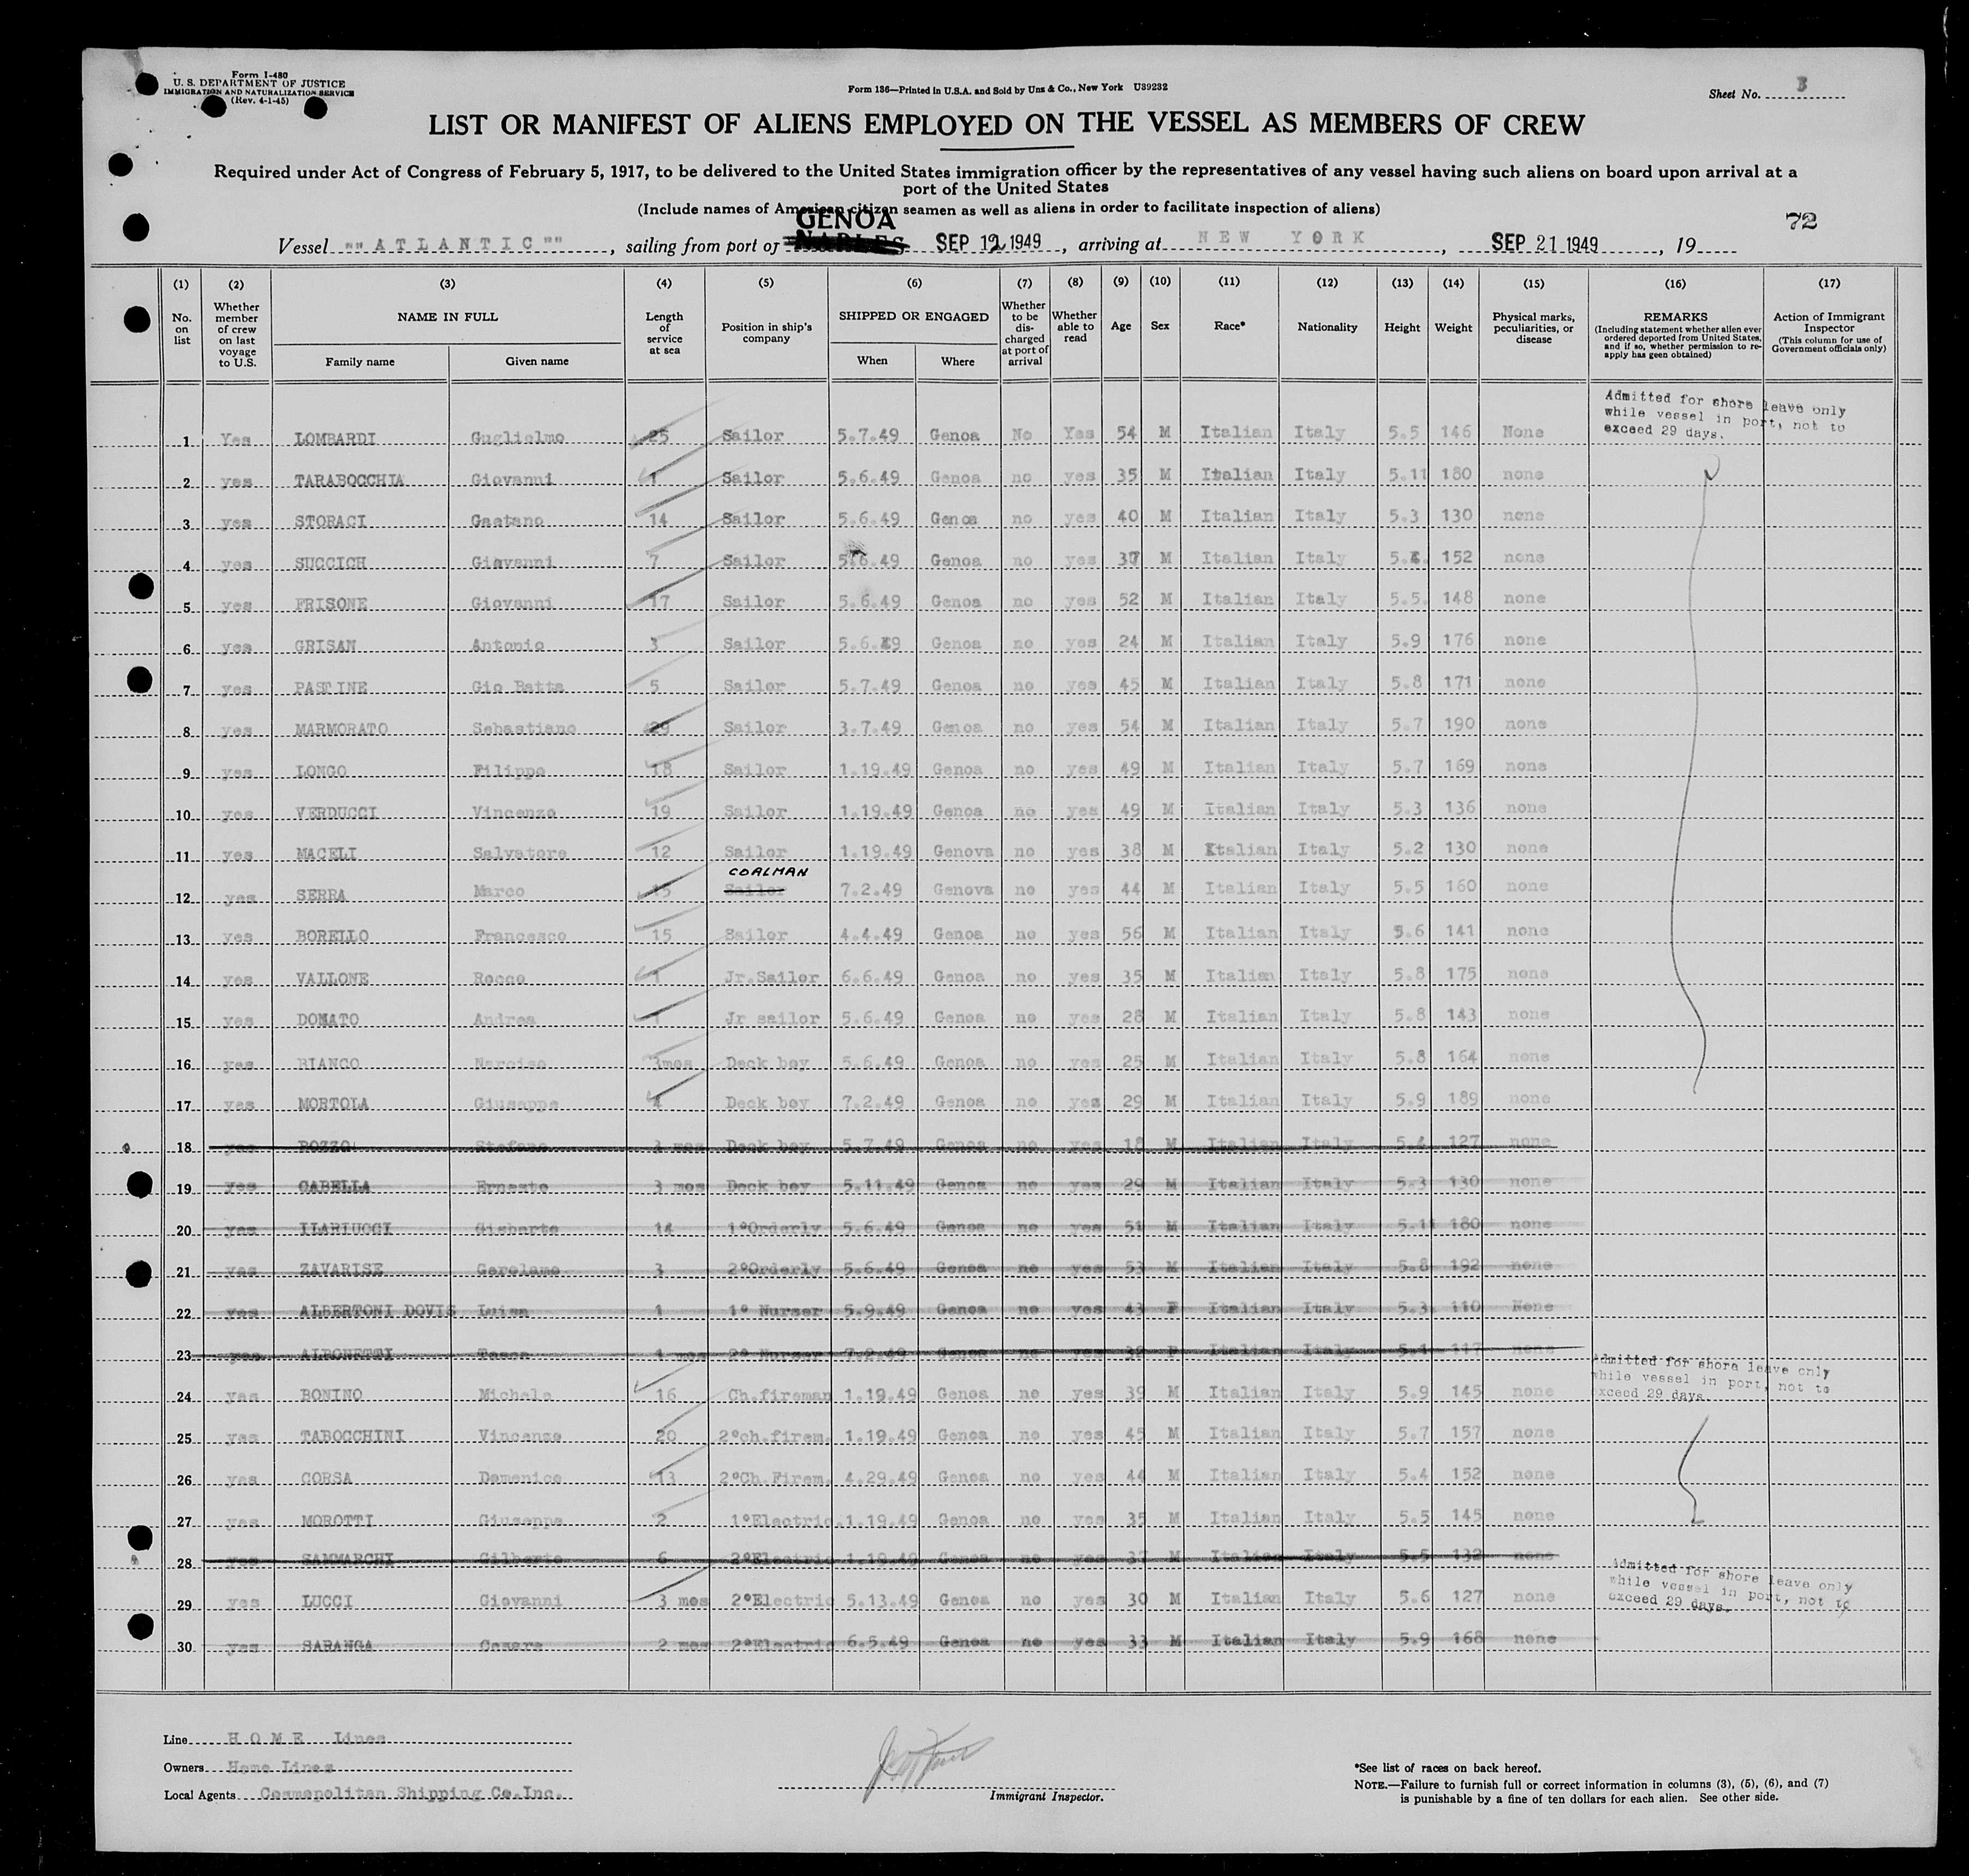 Form I-480
U. S. DEPARTMENT OF JUSTICE
IMMIGRATION AND NATURALIZATION SERVICE
(Rev. 4-1-45)
Form 136—Printed in U.S.A. and Sold by Unz & Co., New York U39232
Sheet No. 3
LIST OR MANIFEST OF ALIENS EMPLOYED ON THE VESSEL AS MEMBERS OF CREW
Required under Act of Congress of February 5, 1917, to be delivered to the United States immigration officer by the representatives of any vessel having such aliens on board upon arrival at a
port of the United States
(Include names of American citizen seamen as well as aliens in order to facilitate inspection of aliens)
72
GENOA
Vessel ""ATLANTIC"", sailing from port of NAPLES SEP 12 1949, arriving at NEW YORK, SEP 21 1949, 19
(1) (2) (3) (4) (5) (6) (7) (8) (9) (10) (11) (12) (13) (14) (15) (16) (17)
No. on list
Whether member of crew on last voyage to U.S.
NAME IN FULL
Family name
Given name
Length of service at sea
Position in ship's company
SHIPPED OR ENGAGED
When
Where
Whether to be discharged at port of arrival
Whether able to read
Age
Sex
Race*
Nationality
Height
Weight
Physical marks, peculiarities, or disease
REMARKS
(Including statement whether alien ever
ordered deported from United States,
and if so, whether permission to re-
apply has geen obtained)
Action of Immigrant
Inspector
(This column for use of
Government officials only)
Admitted for shore leave only
while vessel in port, not to
exceed 29 days.
1 Yes LOMBARDI Guglielmo 25 Sailor 5.7.49 Genoa No Yes 54 M Italian Italy 5.5 146 None
2 yes TARABOCCHIA Giovanni 1 Sailor 5.6.49 Genoa no yes 35 M Italian Italy 5.11 180 none
3 yes STORACI Gaetano 14 Sailor 5.6.49 Genoa no yes 40 M Italian Italy 5.3 130 none
4 yes SUCCICH Giovanni 7 Sailor 5.6.49 Genoa no yes 37 M Italian Italy 5.4. 152 none
5 yes FRISONE Giovanni 17 Sailor 5.6.49 Genoa no yes 52 M Italian Italy 5.5. 148 none
6 yes GRISAN Antonio 3 Sailor 5.6.49 Genoa no yes 24 M Italian Italy 5.9 176 none
7 yes PASTINE Gio Batta 5 Sailor 5.7.49 Genoa no yes 45 M Italian Italy 5.8 171 none
8 yes MARMORATO Sebastiano 29 Sailor 3.7.49 Genoa no yes 54 M Italian Italy 5.7 190 none
9 yes LONGO Filippo 18 Sailor 1.19.49 Genoa no yes 49 M Italian Italy 5.7 169 none
10 yes VERDUCCI Vincenzo 19 Sailor 1.19.49 Genoa no yes 49 M Italian Italy 5.3 136 none
11 yes MACELI Salvatore 12 Sailor 1.19.49 Genova no yes 38 M Italian Italy 5.2 130 none
COALMAN
12 yes SERRA Marco 15 Sailor 7.2.49 Genova no yes 44 M Italian Italy 5.5 160 none
13 yes BORELLO Francesco 15 Sailor 4.4.49 Genoa no yes 56 M Italian Italy 5.6 141 none
14 yes VALLONE Rocco 1 Jr.Sailor 6.6.49 Genoa no yes 35 M Italian Italy 5.8 175 none
15 yes DONATO Andrea 1 Jr sailor 5.6.49 Genoa no yes 28 M Italian Italy 5.8 143 none
16 yes BIANCO Narciso 3mos Deck boy 5.6.49 Genoa no yes 25 M Italian Italy 5.8 164 none
17 yes MORTOLA Giuseppe 4 Deck boy 7.2.49 Genoa no yes 29 M Italian Italy 5.9 189 none
18 yes POZZO Stefano 3 mos Deck boy 5.7.49 Genoa no yes 18 M Italian Italy 5.4 127 none
19 yes CABELLA Ernesto 3 mos Deck boy 5.11.49 Genoa no yes 29 M Italian Italy 5.3 130 none
20 yes ILARIUCCI Gisberto 14 1°Orderly 5.6.49 Genoa no yes 51 M Italian Italy 5.11 180 none
21 yes ZAVARISE Gerolamo 3 2°Orderly 5.6.49 Genoa no yes 53 M Italian Italy 5.8 192 none
22 yes ALBERTONI DOVIS Luisa 1 1° Nurser 5.9.49 Genoa no yes 43 F Italian Italy 5.3. 110 None
23 yes ALBONETTI Tosca 1 mos 2° Nurser 7.2.49 Genoa no yes 39 F Italian Italy 5.4 117 none
Admitted for shore leave only
while vessel in port, not to
exceed 29 days.
24 yes BONINO Michele 16 Ch.fireman 1.19.49 Genoa no yes 39 M Italian Italy 5.9 145 none
25 yes TABOCCHINI Vincenzo 20 2°ch.firem. 1.19.49 Genoa no yes 45 M Italian Italy 5.7 157 none
26 yes CORSA Domenico 13 2°Ch.Firem. 4.29.49 Genoa no yes 44 M Italian Italy 5.4 152 none
27 yes MOROTTI Giuseppe 2 1°Electric. 1.19.49 Genoa no yes 35 M Italian Italy 5.5 145 none
28 yes SAMMARCHI Gilberto 6 2°Electric 1.19.49 Genoa no yes 37 M Italian Italy 5.5 132 none
Admitted for shore leave only
while vessel in port, not to
exceed 29 days.
29 yes LUCCI Giovanni 3 mos 2°Electric 5.13.49 Genoa no yes 30 M Italian Italy 5.6 127 none
30 yes SARANGA Cesare 2 mos 2°Electric 6.5.49 Genoa no yes 33 M Italian Italy 5.9 168 none
Line HOME Lines
Owners Home Lines
Local Agents Cosmopolitan Shipping Co.Inc.
Immigrant Inspector.
*See list of races on back hereof.
NOTE.—Failure to furnish full or correct information in columns (3), (5), (6), and (7)
is punishable by a fine of ten dollars for each alien. See other side.